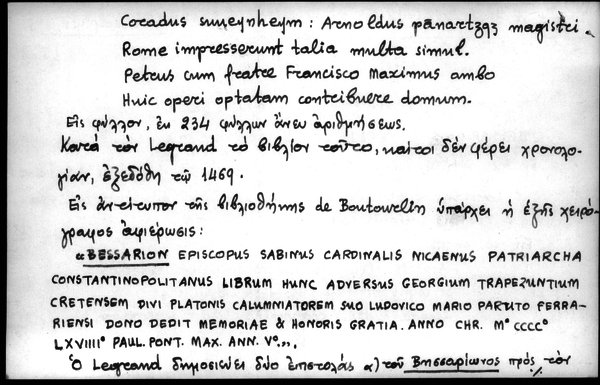 Coradus suueynheym: Arnoldus panartzqz magistri.
Rome impresserunt talia multa simul.
Petrus cum fratre Francisco Maximus ambo
Huic operi optatam contribuere domum.
Εἰς φύλλον, ἐκ 234 φύλλων ἄνευ ἀριθμήσεως.
Κατά τόν Legrand τό βιβλίον τοῦτο, καίτοι δέν φέρει χρονολο-
γίαν, ἐξεδόθη τῷ 1469.
Εἰς ἀντίτυπον τῆς βιβλιοθήκης de Boutourlin ὑπάρχει ἡ ἑξῆς χειρό-
γραφος ἀφιέρωσις:
«BESSARION EPISCOPUS SABINUS CARDINALIS NICAENUS PATRIARCHA
CONSTANTINOPOLITANUS LIBRUM HUNC ADVERSUS GEORGIUM TRAPEZUNTIUM
CRETENSEM DIVI PLATONIS CALUMNIATOREM SUO LUDOVICO MARIO PARUTO FERRA-
RIENSI DONO DEDIT MEMORIAE & HONORIS GRATIA. ANNO CHR. Mº CCCCº
LXVIIIIº PAUL. PONT. MAX. ANN. Vº.,,.
Ὁ Legrand δημοσιεύει δύο ἐπιστολάς α) τοῦ Βησσαρίωνος πρός τόν